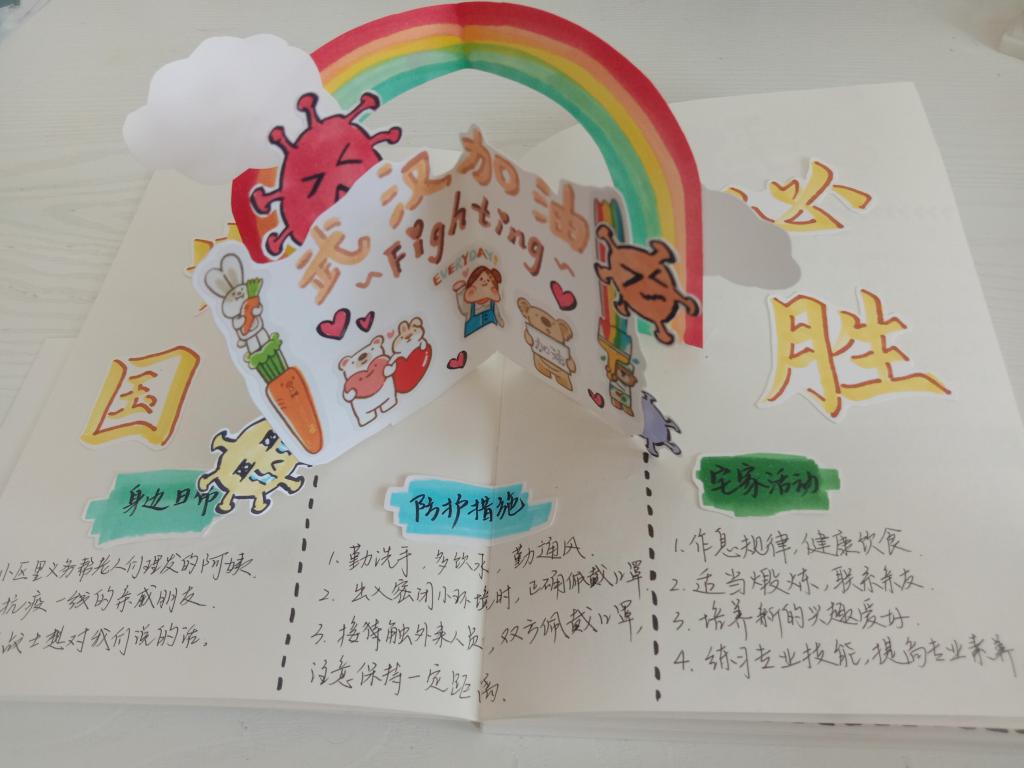 武汉加油
~Fighting~
EVERYDAY!
加油
必
国
胜
身边日常
小区里义务帮老人们理发的阿姨.
抗疫一线的亲戚朋友.
战士想对我们说的话。
防护措施
1. 勤洗手, 多饮水, 勤通风.
2. 出入密闭小环境时, 正确佩戴口罩.
3. 接触外来人员, 双方佩戴口罩,
注意保持一定距离.
宅家活动
1. 作息规律, 健康饮食.
2. 适当煅炼, 联系亲友.
3. 培养新的兴趣爱好.
4. 练习专业技能, 提高专业素养